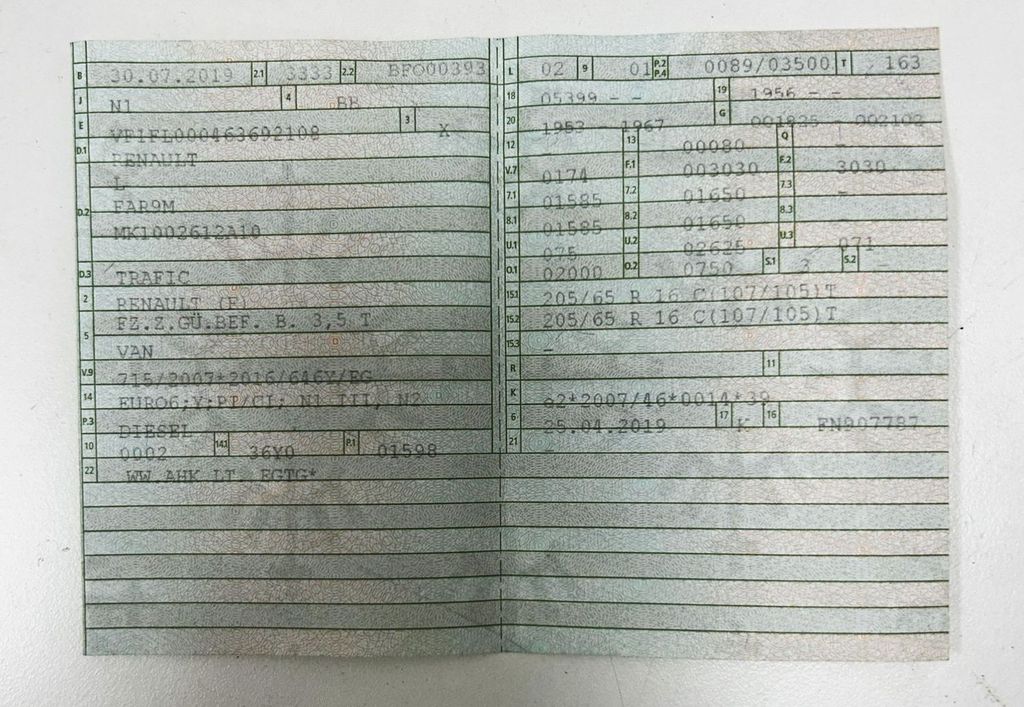 B 30.07.2019 2.1 3333 2.2 BFO00393
J N1 4 BB
E VF1FL000463692108 3 X
D.1 RENAULT
L
D.2 FAR9M
MK1002612A10
D.3 TRAFIC
2 RENAULT (F)
5 FZ.Z.GÜ.BEF. B. 3,5 T
VAN
V.9 715/2007*2016/646Y/EG
14 EURO6;Y;PI/CI; N1 III, N2
P.3 DIESEL
10 0002 14.1 36Y0 P.1 01598
22 WW.AHK LT. EGTG*
L 02 9 01 P.2 P.4 0089/03500 T 163
18 05399 - - 19 1956 - -
20 1953 - 1967 G 001825 - 002102
12 - 13 00080 Q -
V.7 0174 F.1 003030 F.2 3030
7.1 01585 7.2 01650 7.3 -
8.1 01585 8.2 01650 8.3 -
U.1 075 U.2 02625 U.3 071
O.1 02000 O.2 0750 S.1 3 S.2 -
15.1 205/65 R 16 C(107/105)T
15.2 205/65 R 16 C(107/105)T
15.3 -
R 11
K e2*2007/46*0014*39
6 25.04.2019 17 K 16 FN907787
21 -